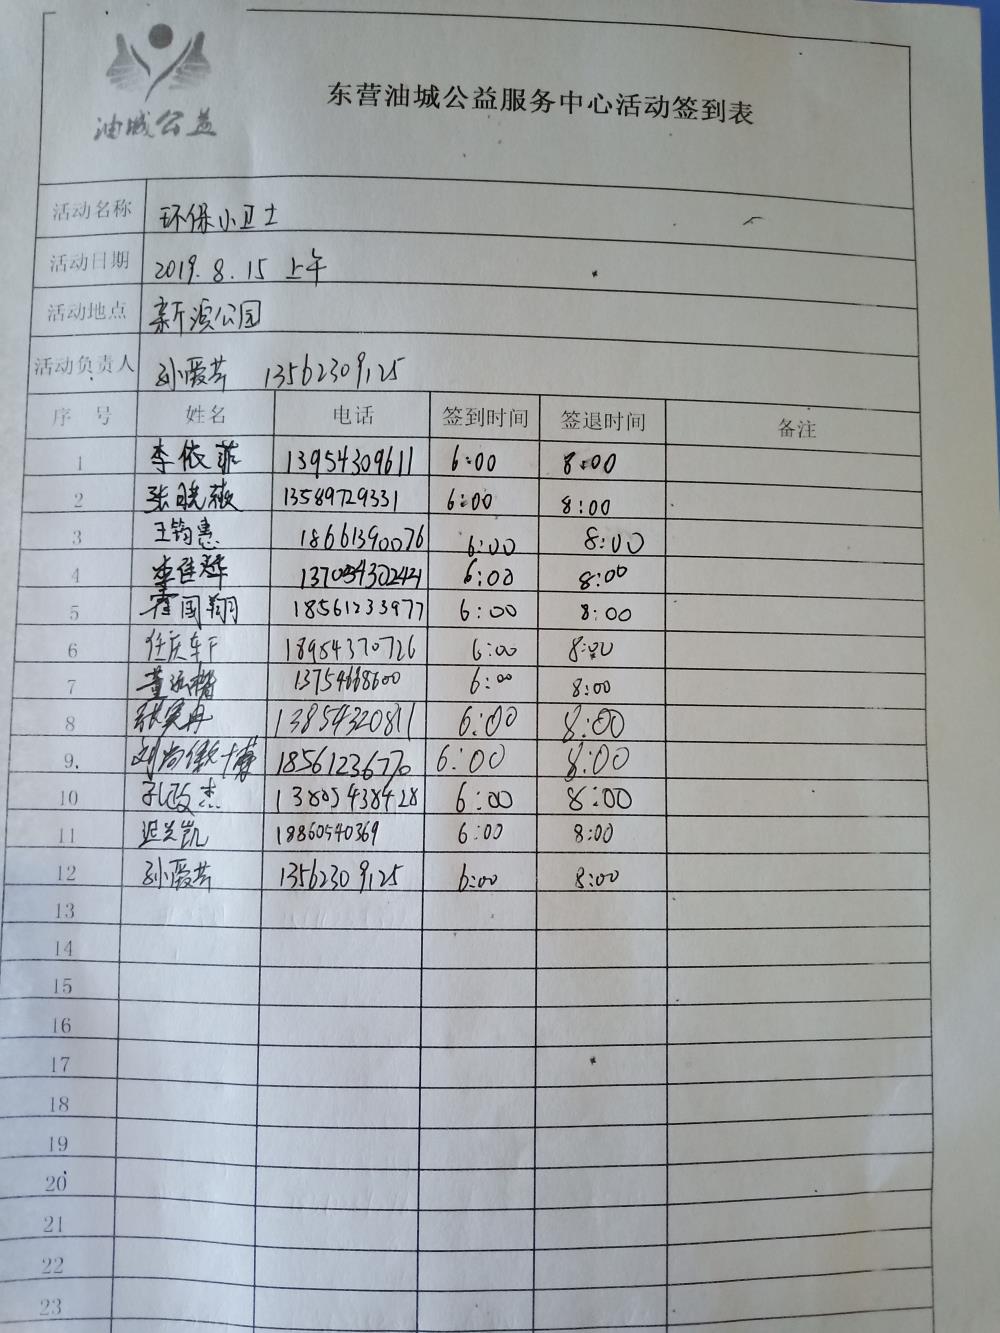 油城公益
东营油城公益服务中心活动签到表
活动名称 环保小卫士
活动日期 2019.8.15 上午
活动地点 新滨公园
活动负责人 孙爱芹 13562309125
序号 姓名 电话 签到时间 签退时间 备注
1 李依菲 13954309611 6:00 8:00
2 张晓薇 13589729331 6:00 8:00
3 王钧惠 18661390076 6:00 8:00
4 李佳 6:00 8:00
5 霍国翔 18561233977 6:00 8:00
6 任庆军 18954370726 6:00 8:00
7 董 13754668600 6:00 8:00
8 张 13854320811 6:00 8:00
9. 刘尚 18561236770 6:00 8:00
10 孔改杰 13805438428 6:00 8:00
11 迟兰凯 18860540369 6:00 8:00
12 孙爱芹 13562309125 6:00 8:00
13
14
15
16
17
18
19
20
21
22
23